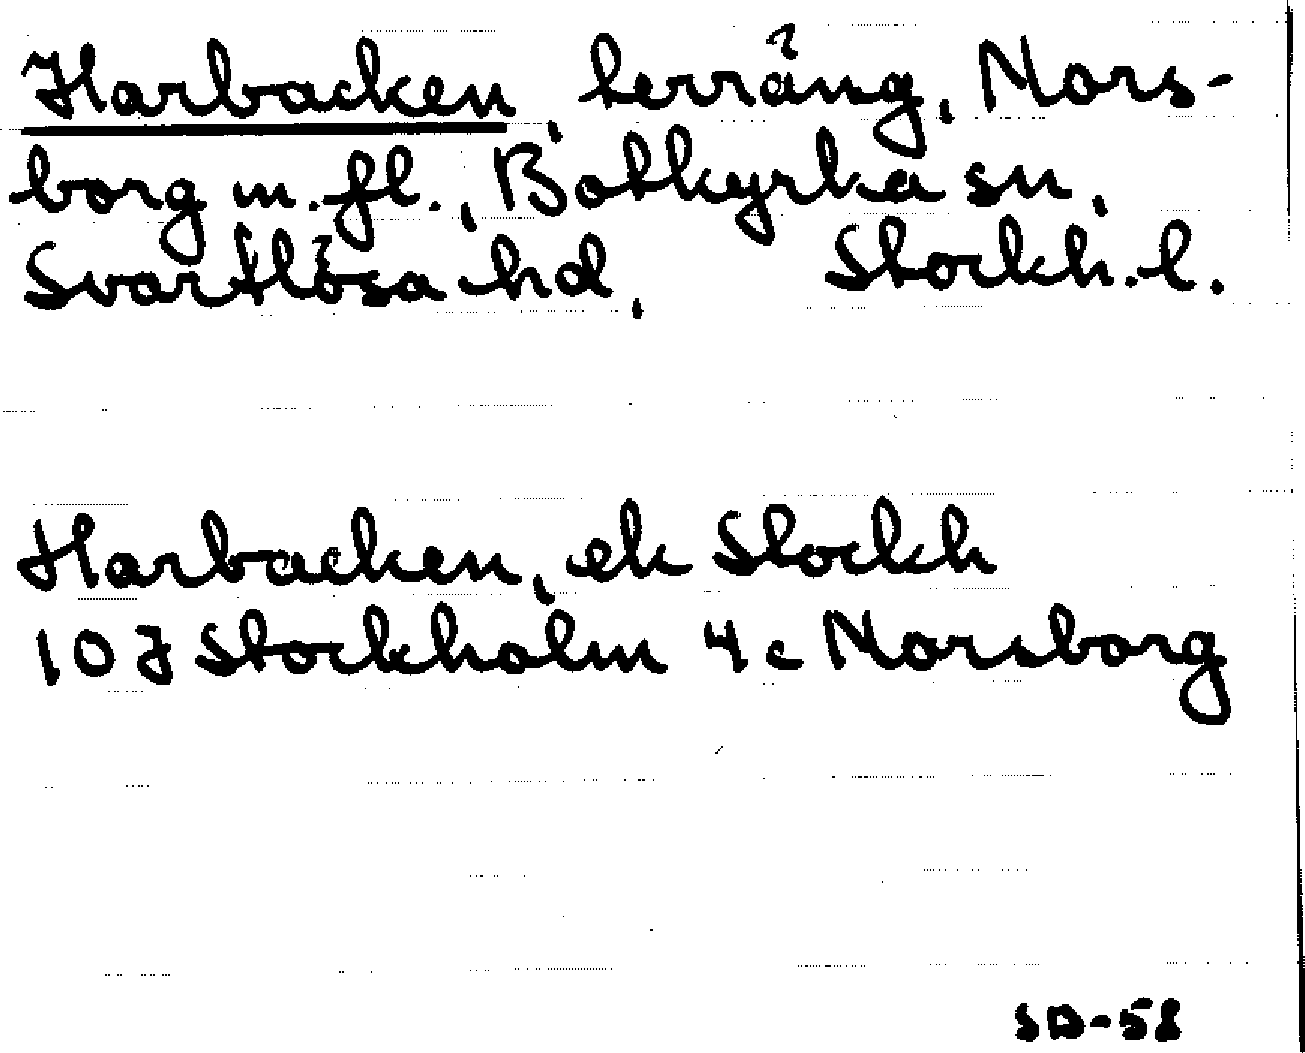 Harbacken, terräng, Nors-
borg m.fl., Botkyrka sn,
Svartlösa hd, Stockh. l.
Harbacken, ek Stockh
10 J Stockholm 4 c Norsborg
SD-58